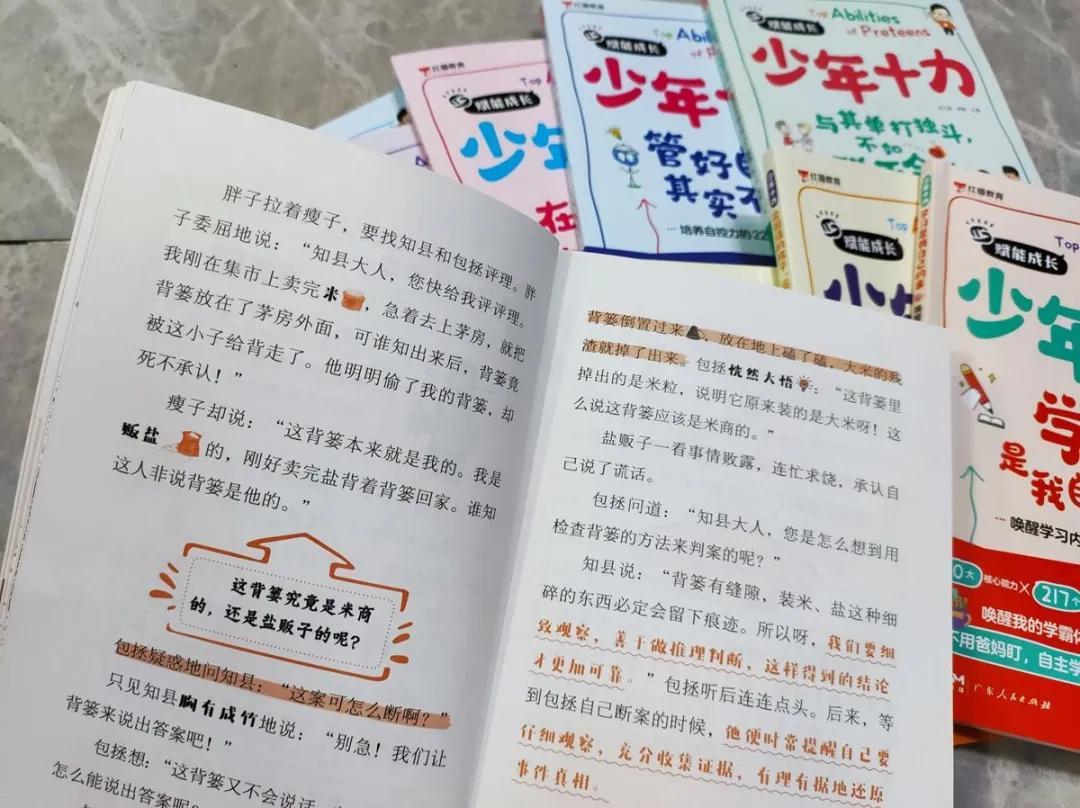 胖子拉着瘦子，要找知县和包拯评理。胖
子委屈地说：“知县大人，您快给我评评理。
我刚在集市上卖完米，急着去上茅房，就把
背篓放在了茅房外面，可谁知出来后，背篓竟
被这小子给背走了。他明明偷了我的背篓，却
死不承认！”
瘦子却说：“这背篓本来就是我的。我是
贩盐的，刚好卖完盐背着背篓回家。谁知
这人非说背篓是他的。”
这背篓究竟是米商
的，还是盐贩子的呢？
包拯疑惑地问知县：“这案可怎么断啊？”
只见知县胸有成竹地说：“别急！我们让
背篓来说出答案吧！”
包拯想：“这背篓又不会说话，
怎么能说出答案呢？
背篓倒置过来，放在地上磕了磕，大米的残
渣就掉了出来。包拯恍然大悟：“这背篓里
掉出的是米粒，说明它原来装的是大米呀！这
么说这背篓应该是米商的。”
盐贩子一看事情败露，连忙求饶，承认自
己说了谎话。
包拯问道：“知县大人，您是怎么想到用
检查背篓的方法来判案的呢？”
知县说：“背篓有缝隙，装米、盐这种细
碎的东西必定会留下痕迹。所以呀，我们要细
致观察，善于做推理判断，这样得到的结论
才更加可靠。”包拯听后连连点头。后来，等
到包拯自己断案的时候，他便时常提醒自己要
仔细观察，充分收集证据，有理有据地还原
事件真相。
红猫教育
赋能成长
Top
少年
在
红猫教育
赋能成长
Top Abilities
of P
少年十
管好自
其实不
... 培养自控力的22
赋能成长
Top Abilities
of Preteens
少年十力
与其单打独斗，
不如
红猫教育
赋能成长
Top
少年
红猫教育
赋能成长
Top
少年
学
是我自
... 唤醒学习内
0大
核心能力
X
217个
唤醒我的学霸
不用爸妈盯，自主学
广东人民出版社